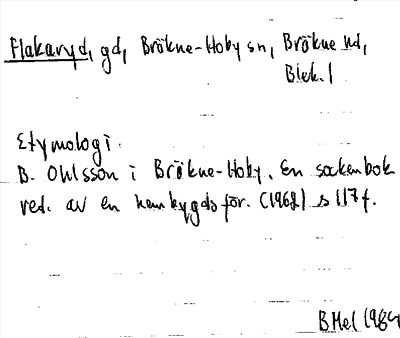 Flakaryd, gd, Bräkne-Hoby sn, Bräkne hd,
Blek.
Etymologi:
B. Ohlsson i Bräkne-Hoby. En sockenbok
red. av en hembygdsför. (1962) s 117 f.
BMel 1984